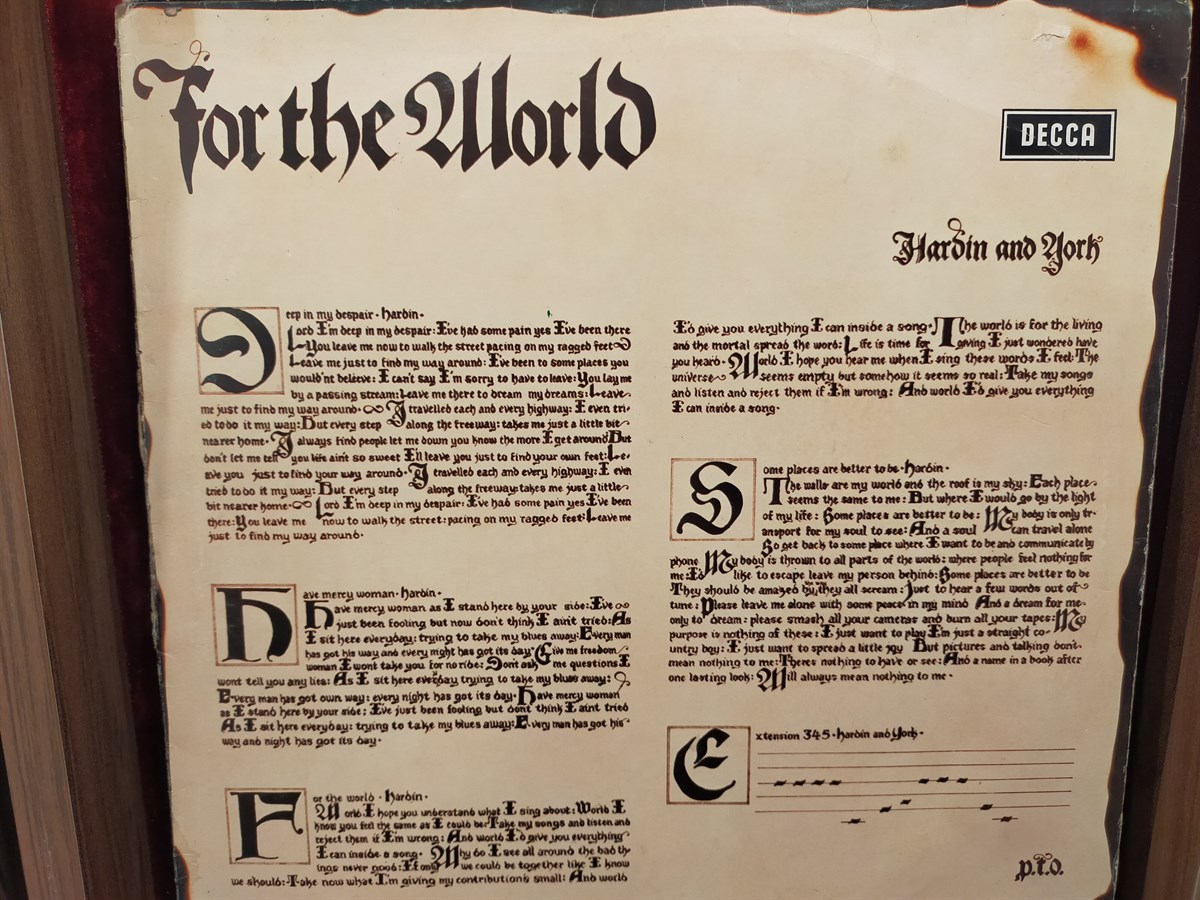 For the World
DECCA
Hardin and York
Deep in my despair · Hardin ·
Lord I'm deep in my despair: I've had some pain yes I've been there
You leave me now to walk the street pacing on my ragged feet
Leave me just to find my way around: I've been to some places you
would'nt believe: I can't say I'm sorry to have to leave: You lay me
by a passing stream: Leave me there to dream my dreams: Leave
me just to find my way around · I travelled each and every highway: I even tri-
ed to do it my way: But every step along the freeway: takes me just a little bit
nearer home · I always find people let me down you know the more I get around But
don't let me tell you life ain't so sweet I'll leave you just to find your own feet: Le-
ave you just to find your way around · I travelled each and every highway: I even
tried to do it my way: But every step along the freeway: takes me just a little
bit nearer home · Lord I'm deep in my despair: I've had some pain yes I've been
there: You leave me now to walk the street: pacing on my ragged feet: Leave me
just to find my way around ·
Have mercy woman · Hardin ·
Have mercy woman as I stand here by your side: I've
just been fooling but now don't think I ain't tried: As
I sit here everyday: trying to take my blues away: Every man
has got his way and every night has got its day: Give me freedom
woman I wont take you for no ride: Don't ask me questions I
wont tell you any lies: As I sit here everyday trying to take my blues away:
Every man has got own way: every night has got its day · Have mercy woman
as I stand here by your side: I've just been fooling but dont think I aint tried
As I sit here everyday: trying to take my blues away: Every man has got his
way and night has got its day ·
For the world · Hardin ·
World I hope you understand what I sing about: World I
know you feel the same as I could be: Take my songs and listen and
reject them if I'm wrong: And world I'd give you everything
I can inside a song · Why do I see all around the bad th-
ings never good: If only we could be together like I know
we should: Take now what I'm giving my contributions small: And world
I'd give you everything I can inside a song · The world is for the living
and the mortal spread the word: Life is time for giving I just wondered have
you heard · World I hope you hear me when I sing these words I feel: The
universe seems empty but somehow it seems so real: Take my songs
and listen and reject them if I'm wrong: And world I'd give you everything
I can inside a song ·
Some places are better to be · Hardin ·
The walls are my world and the roof is my sky: Each place
seems the same to me: But where I would go by the light
of my life: Some places are better to be: My body is only tr-
ansport for my soul to see: And a soul can travel alone
So get back to some place where I want to be and communicate by
phone My body is thrown to all parts of the world: where people feel nothing for
me: I'd like to escape leave my person behind: Some places are better to be
They should be amazed by the way they all scream: Just to hear a few words out of
tune: Please leave me alone with some peace in my mind And a dream for me
only to dream: please smash all your cameras and burn all your tapes: My
purpose is nothing of these: I just want to play I'm just a straight co-
untry boy: I just want to spread a little joy But pictures and talking don't
mean nothing to me: Theres nothing to have or see: And a name in a book after
one lasting look: Will always mean nothing to me ·
Extension 345 · Hardin and York ·
p.t.o.